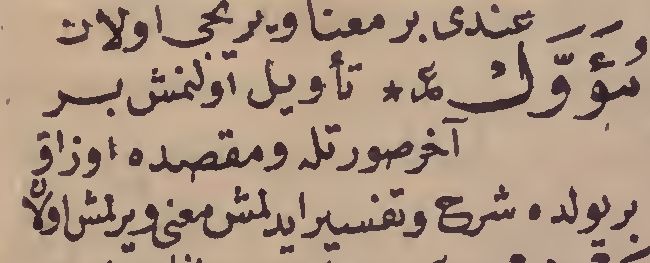 عندى بر معنا ويريجى اولان
مُؤَوَّلْ ع * تأويل اولنمش بر
آخر صورتله و مقصده اوزاق
بر يولده شرح و تفسير ايدلمش معنى ويرلمش اولان